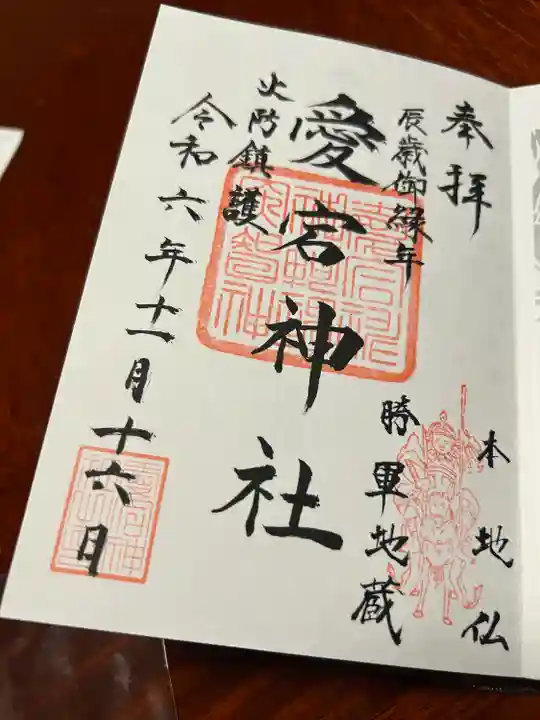 奉拝
辰歳御縁年
本地仏
勝軍地蔵
愛宕神社
火防鎮護
令和六年十一月十六日